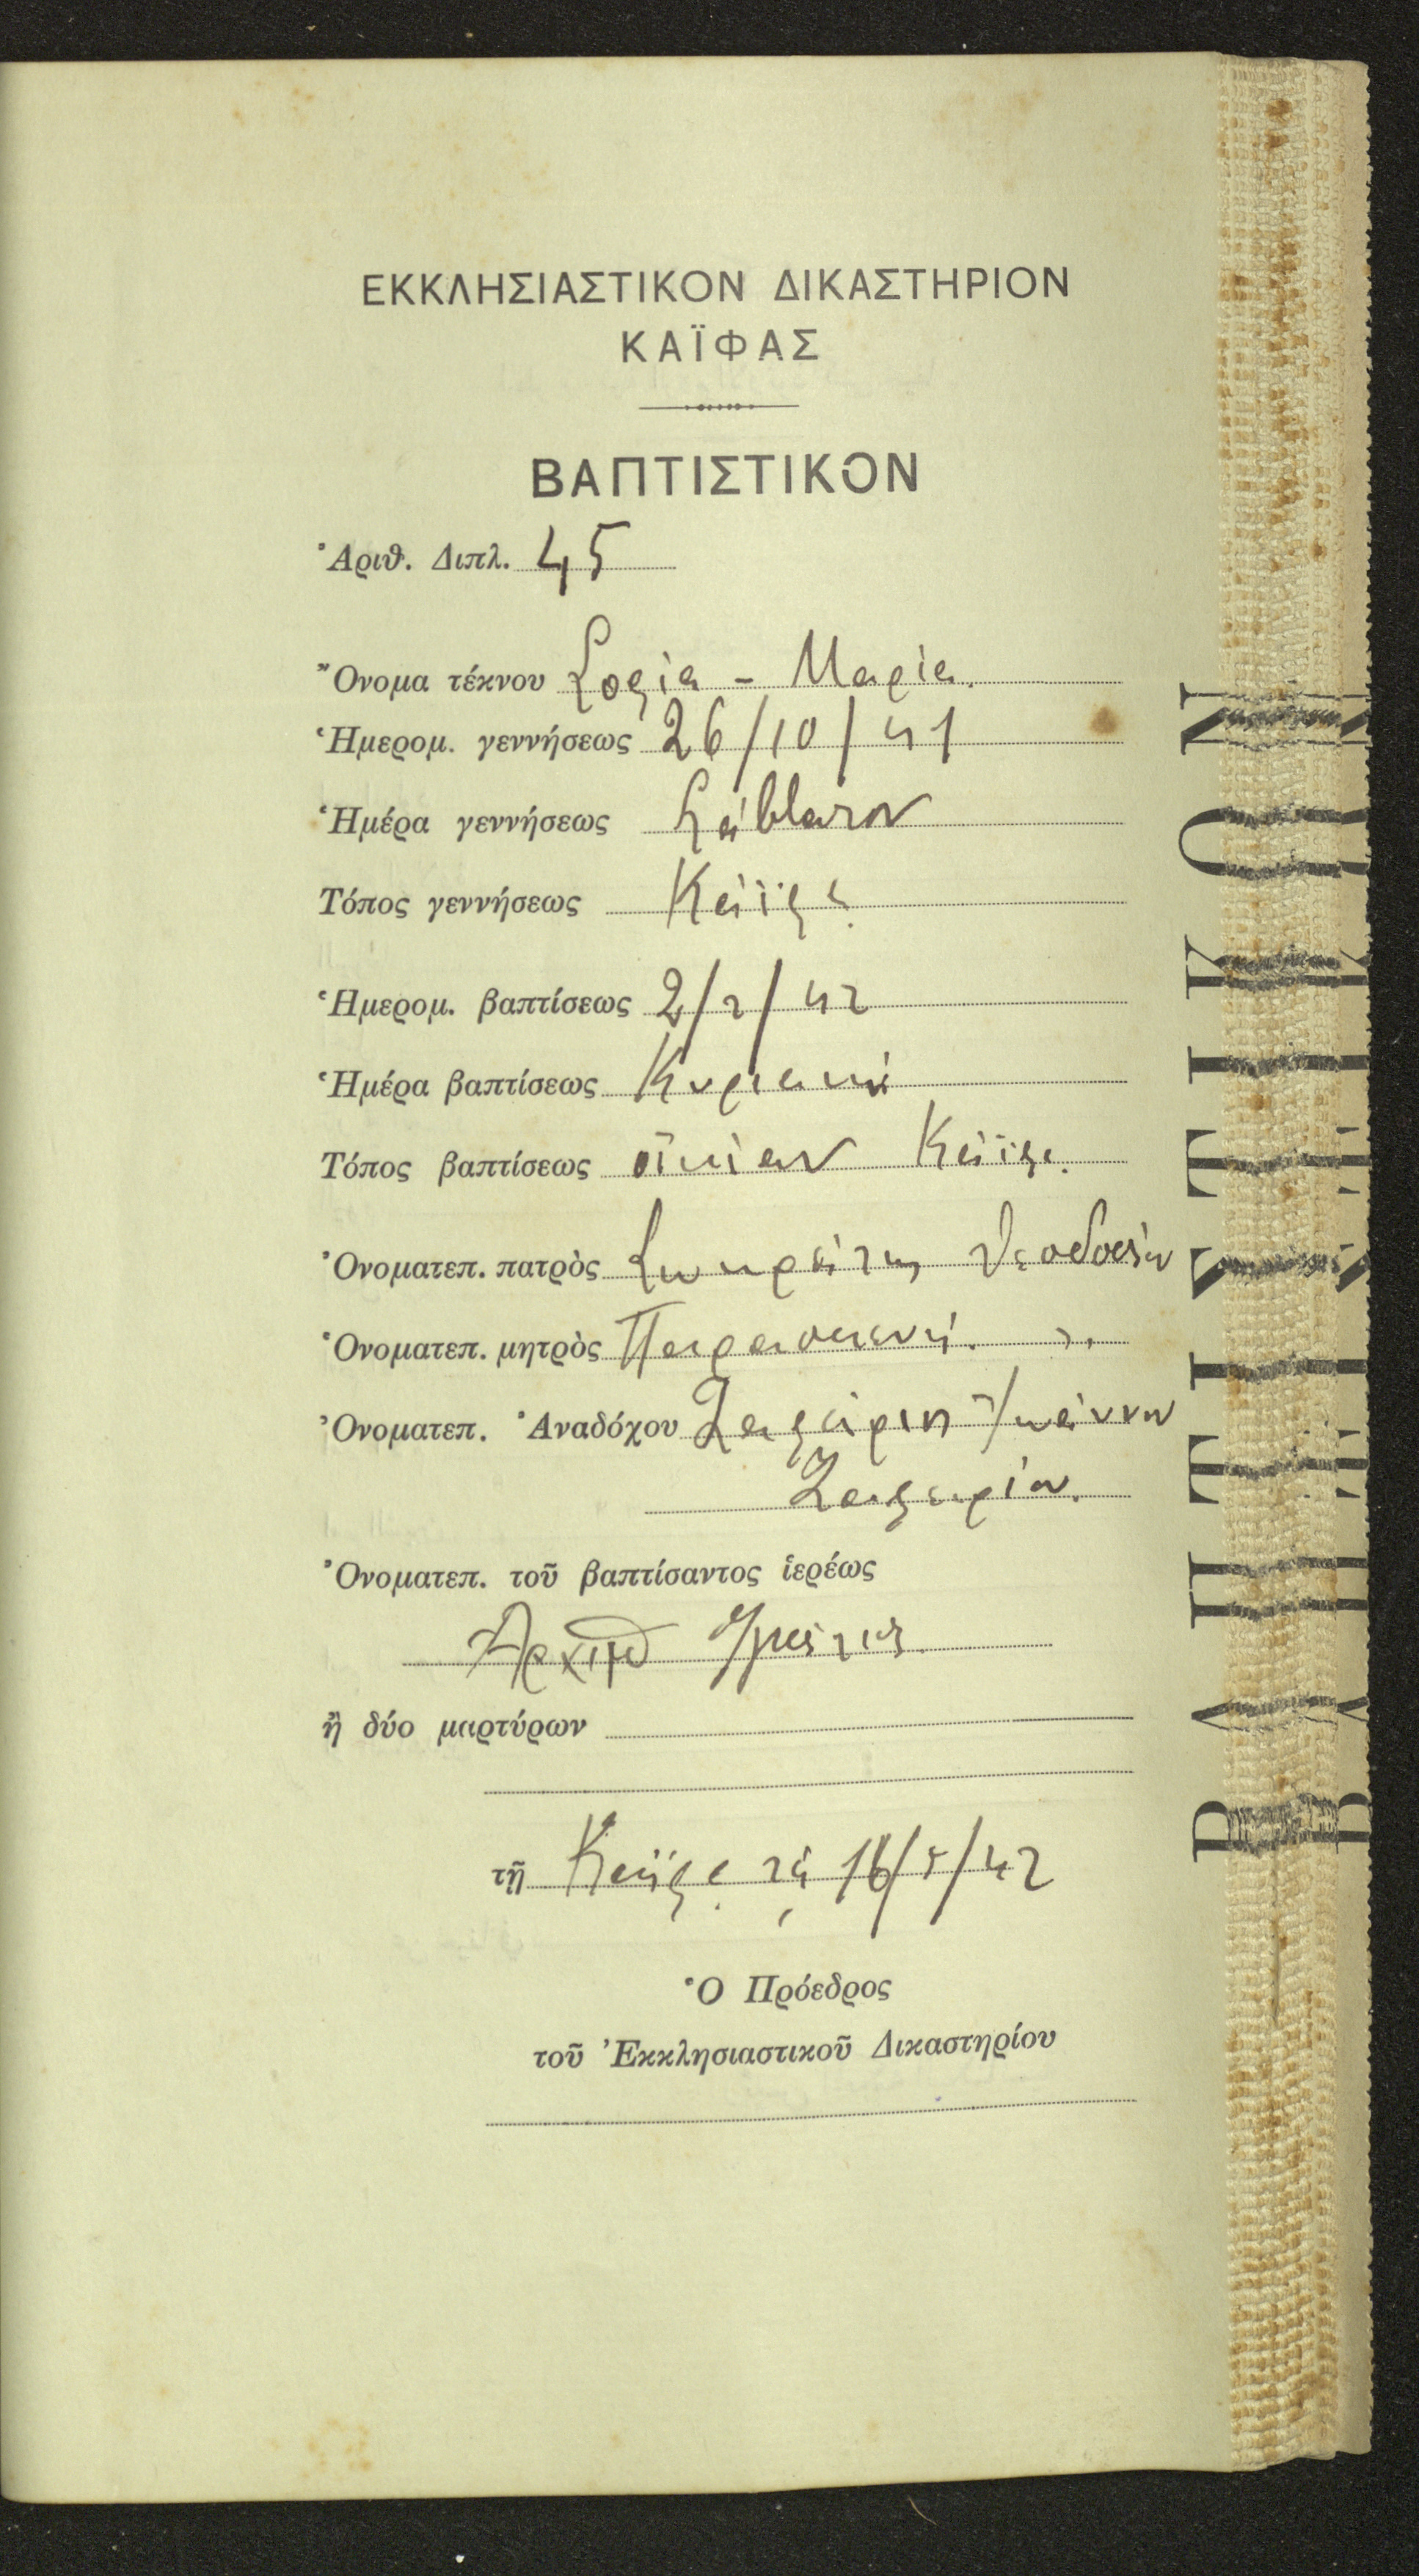 ΕΚΚΛΗΣΙΑΣΤΙΚΟΝ ΔΙΚΑΣΤΗΡΙΟΝ
ΚΑΪΦΑΣ
ΒΑΠΤΙΣΤΙΚΟΝ
Ἀριθ. Διπλ. 45
Ὄνομα τέκνου Σοφία - Μαρία.
Ἡμερομ. γεννήσεως 26/10/41
Ἡμέρα γεννήσεως Σάββατον
Τόπος γεννήσεως Κάϊφᾳ
Ἡμερομ. βαπτίσεως 2/2/42
Ἡμέρα βαπτίσεως Κυριακή
Τόπος βαπτίσεως οἰκίαν Κάϊφα.
Ὀνοματεπ. πατρὸς Σωκράτης Θεοδοσίου
Ὀνοματεπ. μητρὸς Παρασκευή. 〃
Ὀνοματεπ. Ἀναδόχου Ζαφείριη Ἰωάννου
Ζαφειρίου.
Ὀνοματεπ. τοῦ βαπτίσαντος ἱερέως
Ἀρχιμ Ἰγνάτιος.
ἢ δύο μαρτύρων
τῇ Κάϊφᾳ τῇ 16/5/42
Ὁ Πρόεδρος
τοῦ Ἐκκλησιαστικοῦ Δικαστηρίου
ΒΑΠΤΙΣΤΙΚΟΝ